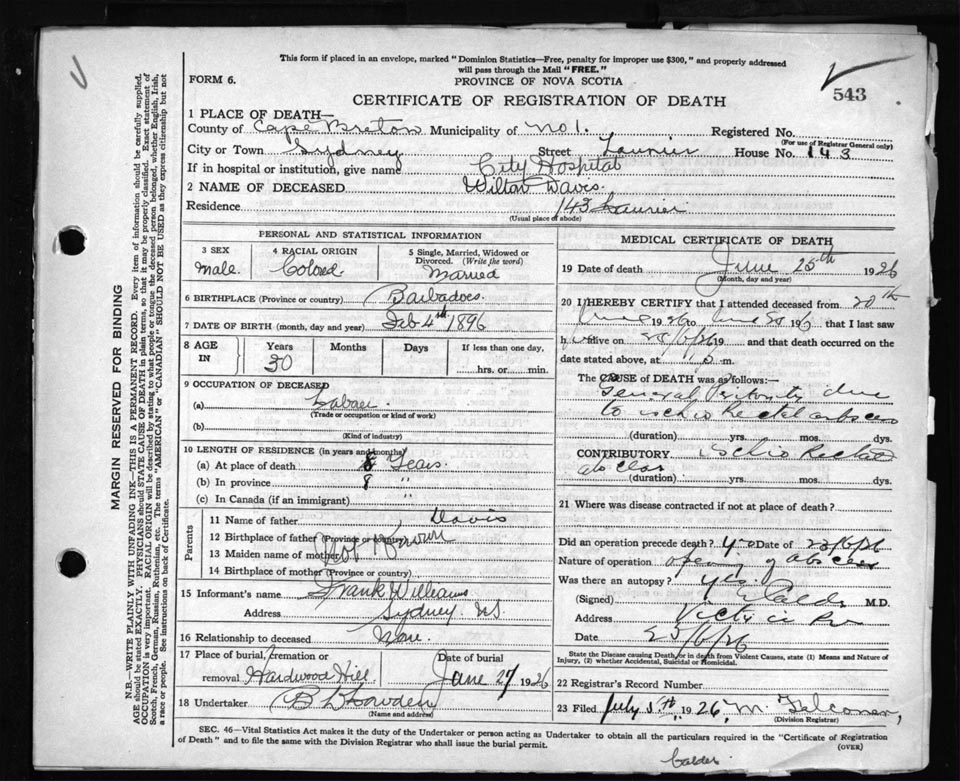 This form if placed in an envelope, marked "Dominion Statistics—Free, penalty for improper use $300," and properly addressed
will pass through the Mail "FREE."
FORM 6.
PROVINCE OF NOVA SCOTIA
543
CERTIFICATE OF REGISTRATION OF DEATH
1 PLACE OF DEATH—
County of Cape Breton Municipality of No 1. Registered No.
(For use of Registrar General only)
City or Town Sydney Street Laurier House No. 143
If in hospital or institution, give name City Hospital
2 NAME OF DECEASED Wilton Davis.
Residence 143 Laurier
(Usual place of abode)
PERSONAL AND STATISTICAL INFORMATION
3 SEX
Male.
4 RACIAL ORIGIN
Colored.
5 Single, Married, Widowed or
Divorced. (Write the word)
Married
6 BIRTHPLACE (Province or country) Barbadoes.
7 DATE OF BIRTH (month, day and year) Feb 4th 1896
8 AGE
IN
Years
30
Months
Days
If less than one day,
hrs. or min.
9 OCCUPATION OF DECEASED
(a) Labaer
(Trade or occupation or kind of work)
(b)
(Kind of industry)
10 LENGTH OF RESIDENCE (in years and months)
(a) At place of death 8 Years.
(b) In province 8 "
(c) In Canada (if an immigrant) "
Parents
11 Name of father Davis
12 Birthplace of father (Province or country)
Not Known
13 Maiden name of mother
14 Birthplace of mother (Province or country)
15 Informant's name Frank Williams
Address Sydney NS.
16 Relationship to deceased None.
17 Place of burial, cremation or
removal Hardwood Hill
Date of burial
June 27 1926
18 Undertaker
(Name and address)
MEDICAL CERTIFICATE OF DEATH
19 Date of death June 25th 1926
(Month, day and year)
20 I HEREBY CERTIFY that I attended deceased from 20th
June 1926 to June 25 1926 that I last saw
h alive on 25/6/26 19 and that death occurred on the
date stated above, at m.
The CAUSE OF DEATH was as follows:—
General Peritonity due
to ischio Rectal abscess
(duration) yrs. mos. dys.
CONTRIBUTORY ischio Rectal
abscess
(duration) yrs. mos. dys.
21 Where was disease contracted if not at place of death?
Did an operation precede death? Yes Date of 23/6/26
Nature of operation opening of abscess
Was there an autopsy? yes.
(Signed) M.D.
Address
Date 25/6/26
State the Disease causing Death, or in death from Violent Causes, state (1) Means and Nature of
Injury, (2) whether Accidental, Suicidal or Homicidal.
22 Registrar's Record Number
23 Filed July 5th, 1926, M. Falconer,
(Division Registrar)
SEC. 46—Vital Statistics Act makes it the duty of the Undertaker or person acting as Undertaker to obtain all the particulars required in the "Certificate of Registration
of Death" and to file the same with the Division Registrar who shall issue the burial permit.
(OVER)
Calder
MARGIN RESERVED FOR BINDING
N.B.—WRITE PLAINLY WITH UNFADING INK—THIS IS A PERMANENT RECORD. Every item of information should be carefully supplied.
AGE should be stated EXACTLY. PHYSICIANS should STATE CAUSE OF DEATH in plain terms, so that it may be properly classified. Exact statement of
OCCUPATION is very important. RACIAL ORIGIN will be described by stating to what people or tongue the deceased person belonged, whether English, Irish,
Scotch, French, German, Russian, Ruthenian, etc. The terms "AMERICAN" or "CANADIAN" SHOULD NOT BE USED as they express citizenship but not
a race or people. See instructions on back of Certificate.